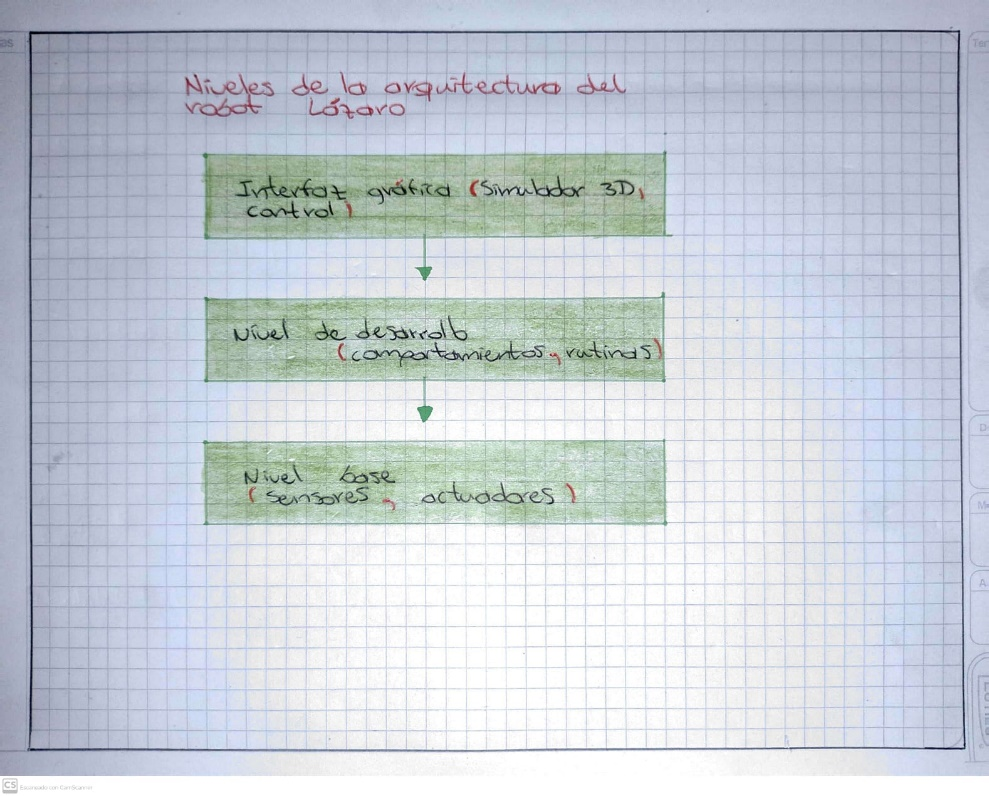 Niveles de la arquitectura del
robot Lázaro
Interfaz gráfica (Simulador 3D,
control)
Nivel de desarrollo
(comportamientos, rutinas)
Nivel base
(sensores, actuadores)
CS Escaneado con CamScanner